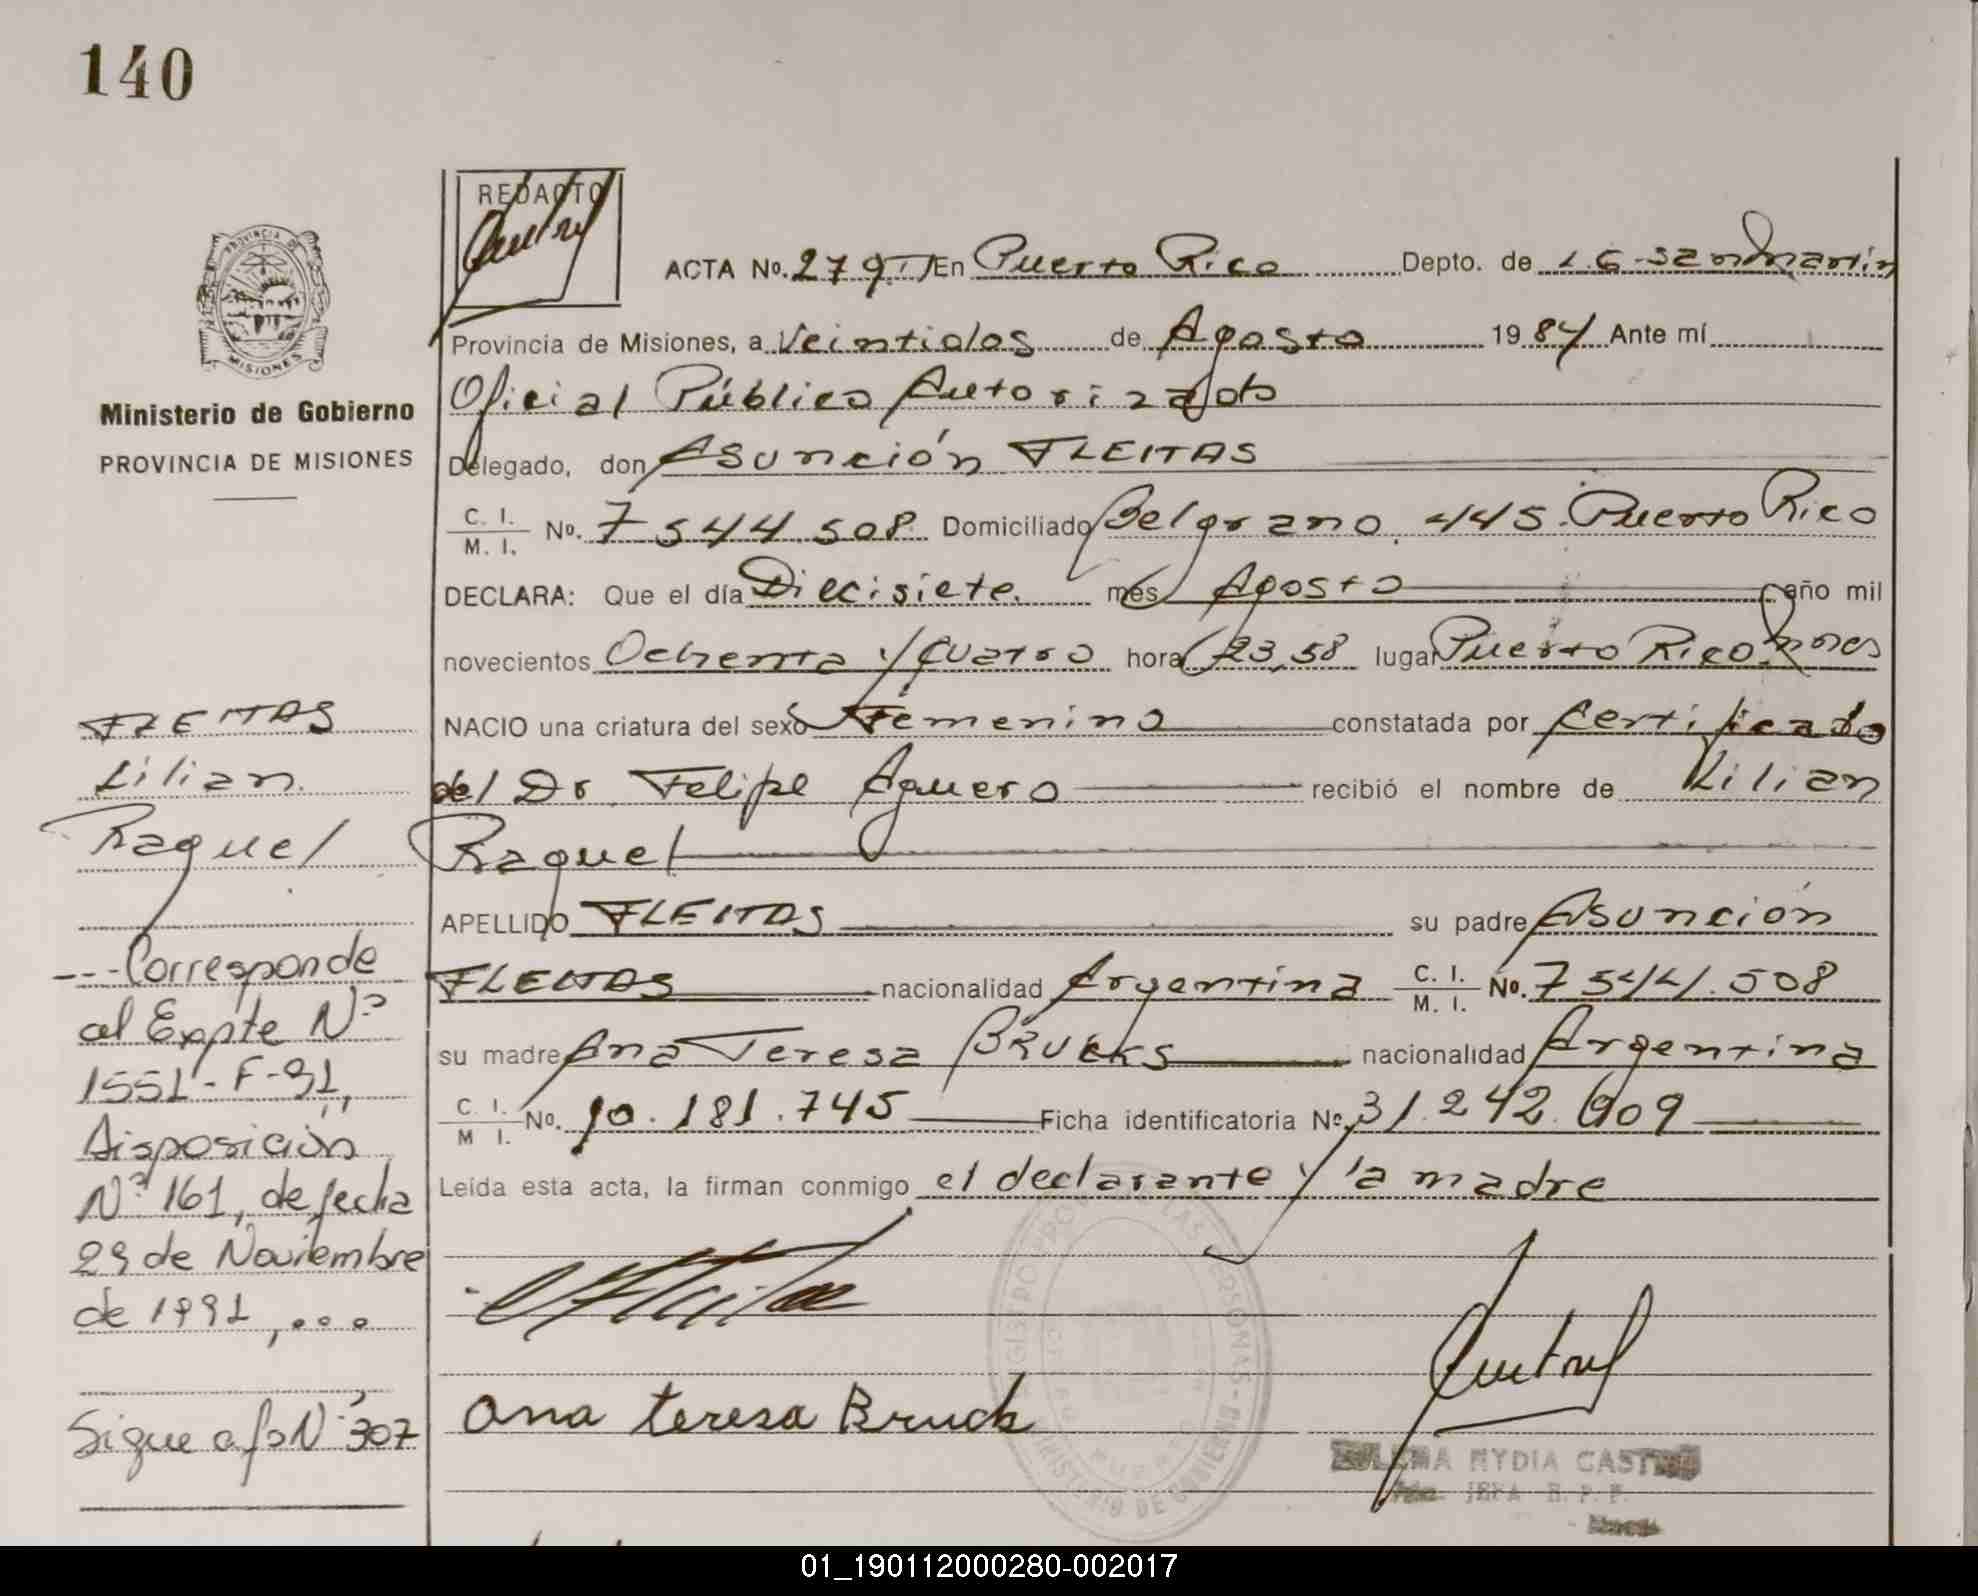 140
REDACTO
ACTA No. 279 T En Puerto Rico Depto. de L.G. San Martín
PROVINCIA DE
MISIONES
Provincia de Misiones, a Veintidos de Agosto 1984 Ante mí
Oficial Público Autorizado
Ministerio de Gobierno
PROVINCIA DE MISIONES
Delegado, don Asunción FLEITAS
C. I.
M. I. No. 7 544.508 Domiciliado Belgrano 445. Puerto Rico
DECLARA: Que el día Diecisiete mes Agosto año mil
novecientos Ochenta y Cuatro hora 23,58 lugar Puerto Rico Mnes
NACIO una criatura del sexo Femenino constatada por Certificado
del Dr. Felipe Aguero recibió el nombre de Lilian
Raquel
APELLIDO FLEITAS su padre Asunción
FLEITAS nacionalidad Argentina C. I. M. I. No. 7 544.508
su madre Ana Teresa BRUCKS nacionalidad Argentina
C. I. M I. No. 10.181.745 Ficha identificatoria No. 31.242.909
Leída esta acta, la firman conmigo el declarante y la madre
FLEITAS
Lilian
Raquel
---Corresponde
al Expte Nº
1551-F-91,
Disposición
Nº 161, de fecha
29 de Noviembre
de 1991, ...
Sigue a fo Nº 307
Ana Teresa Bruck
MYDIA CASTRO
JEFA R. P. P.
01_190112000280-002017